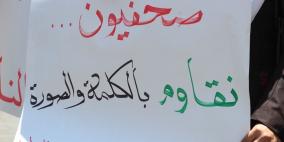 صحفيون...
نقاوم بالكلمة والصورة